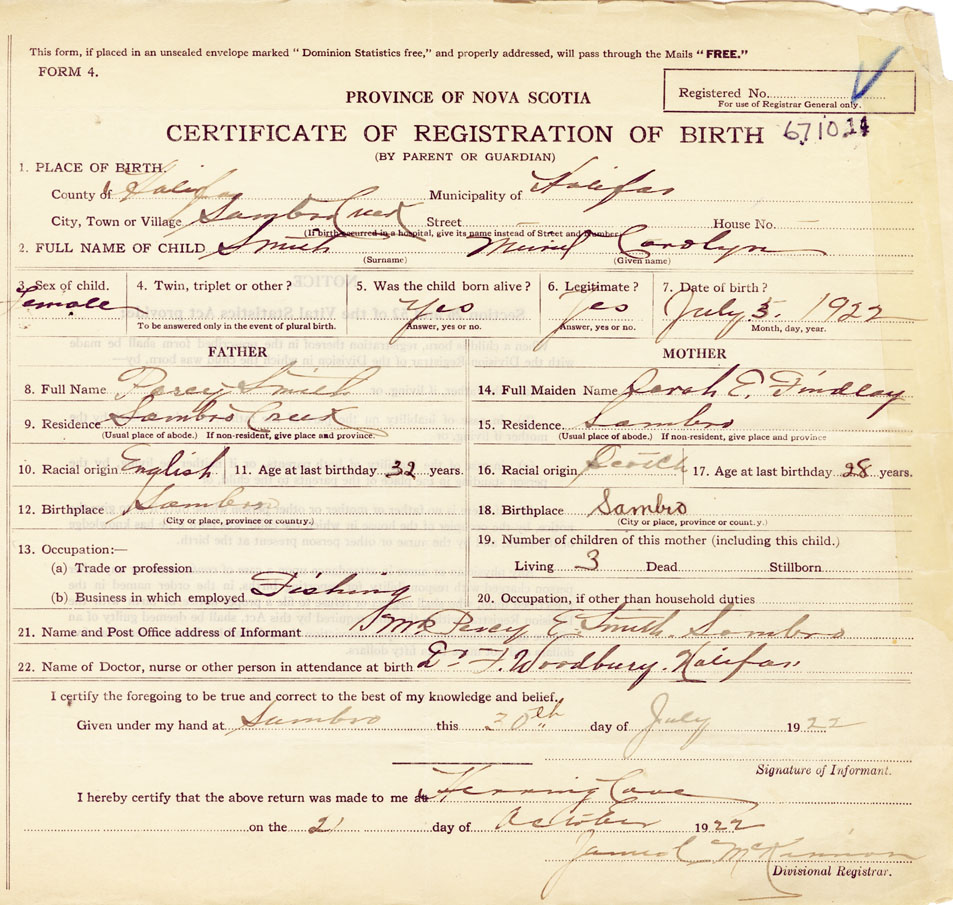 This form, if placed in an unsealed envelope marked "Dominion Statistics free," and properly addressed, will pass through the Mails "FREE."
FORM 4.
Registered No.
For use of Registrar General only.
PROVINCE OF NOVA SCOTIA
CERTIFICATE OF REGISTRATION OF BIRTH
(BY PARENT OR GUARDIAN)
1. PLACE OF BIRTH.
County of Halifax Municipality of Halifax
City, Town or Village Sambro Creek Street — House No. —
(If birth occurred in a hospital, give its name instead of Street and Number.)
2. FULL NAME OF CHILD Smith Muriel Carolyn
(Surname) (Given name)
3. Sex of child. 4. Twin, triplet or other? 5. Was the child born alive? 6. Legitimate? 7. Date of birth?
Female Yes Yes July 5, 1922
To be answered only in the event of plural birth. Answer, yes or no. Answer, yes or no. Month, day, year.
FATHER MOTHER
8. Full Name Percy Smith 14. Full Maiden Name Sarah E. Findley
9. Residence Sambro Creek 15. Residence Sambro
(Usual place of abode.) If non-resident, give place and province. (Usual place of abode.) If non-resident, give place and province
10. Racial origin English 11. Age at last birthday 32 years. 16. Racial origin Scotch 17. Age at last birthday 28 years.
12. Birthplace Sambro 18. Birthplace Sambro
(City or place, province or country.) (City or place, province or country.)
13. Occupation:— 19. Number of children of this mother (including this child.)
(a) Trade or profession Living 3 Dead Stillborn
(b) Business in which employed Fishing 20. Occupation, if other than household duties
21. Name and Post Office address of Informant Mrs Percy E. Smith. Sambro
22. Name of Doctor, nurse or other person in attendance at birth Dr F. Woodbury. Halifax
I certify the foregoing to be true and correct to the best of my knowledge and belief.
Given under my hand at Sambro this 30th day of July 1922
Signature of Informant.
I hereby certify that the above return was made to me at Herring Cove
on the 2 day of October 1922
McKinnon
Divisional Registrar.